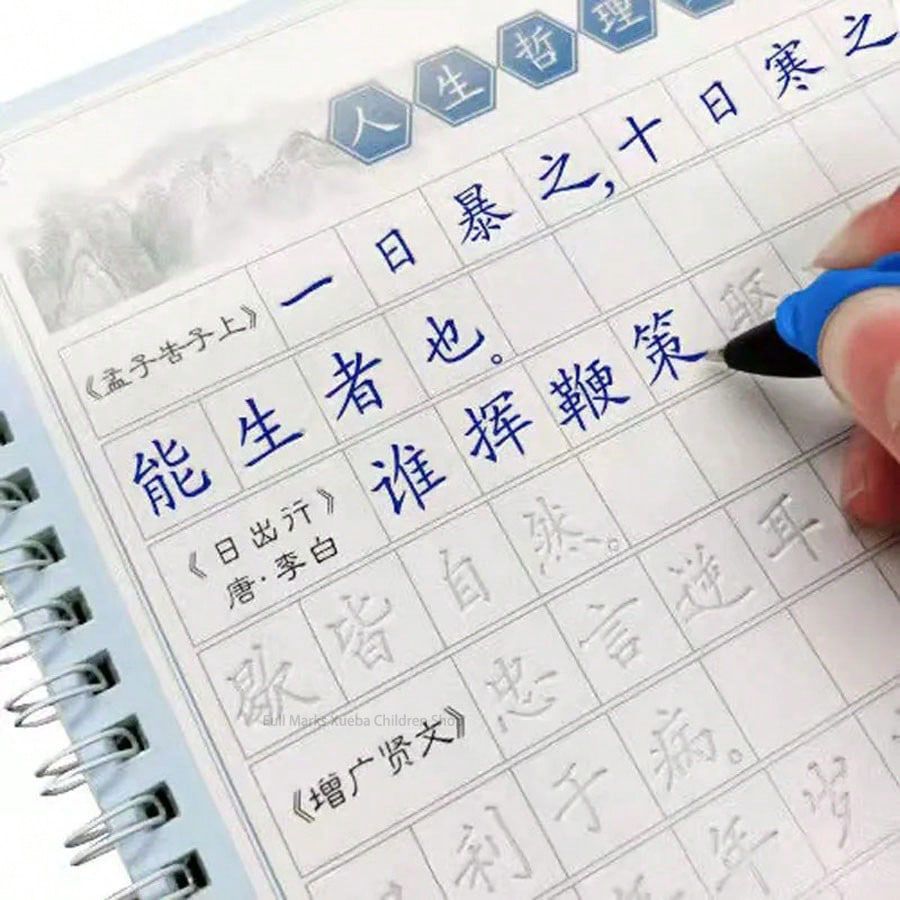 人生哲理
《孟子告子上》 一日暴之,十日寒之
能生者也。
《日出行》 唐·李白 谁挥鞭策驱
歇皆自然。
《增广贤文》 忠言逆耳
利于病。
年岁
Full Marks Xueba Children Shop